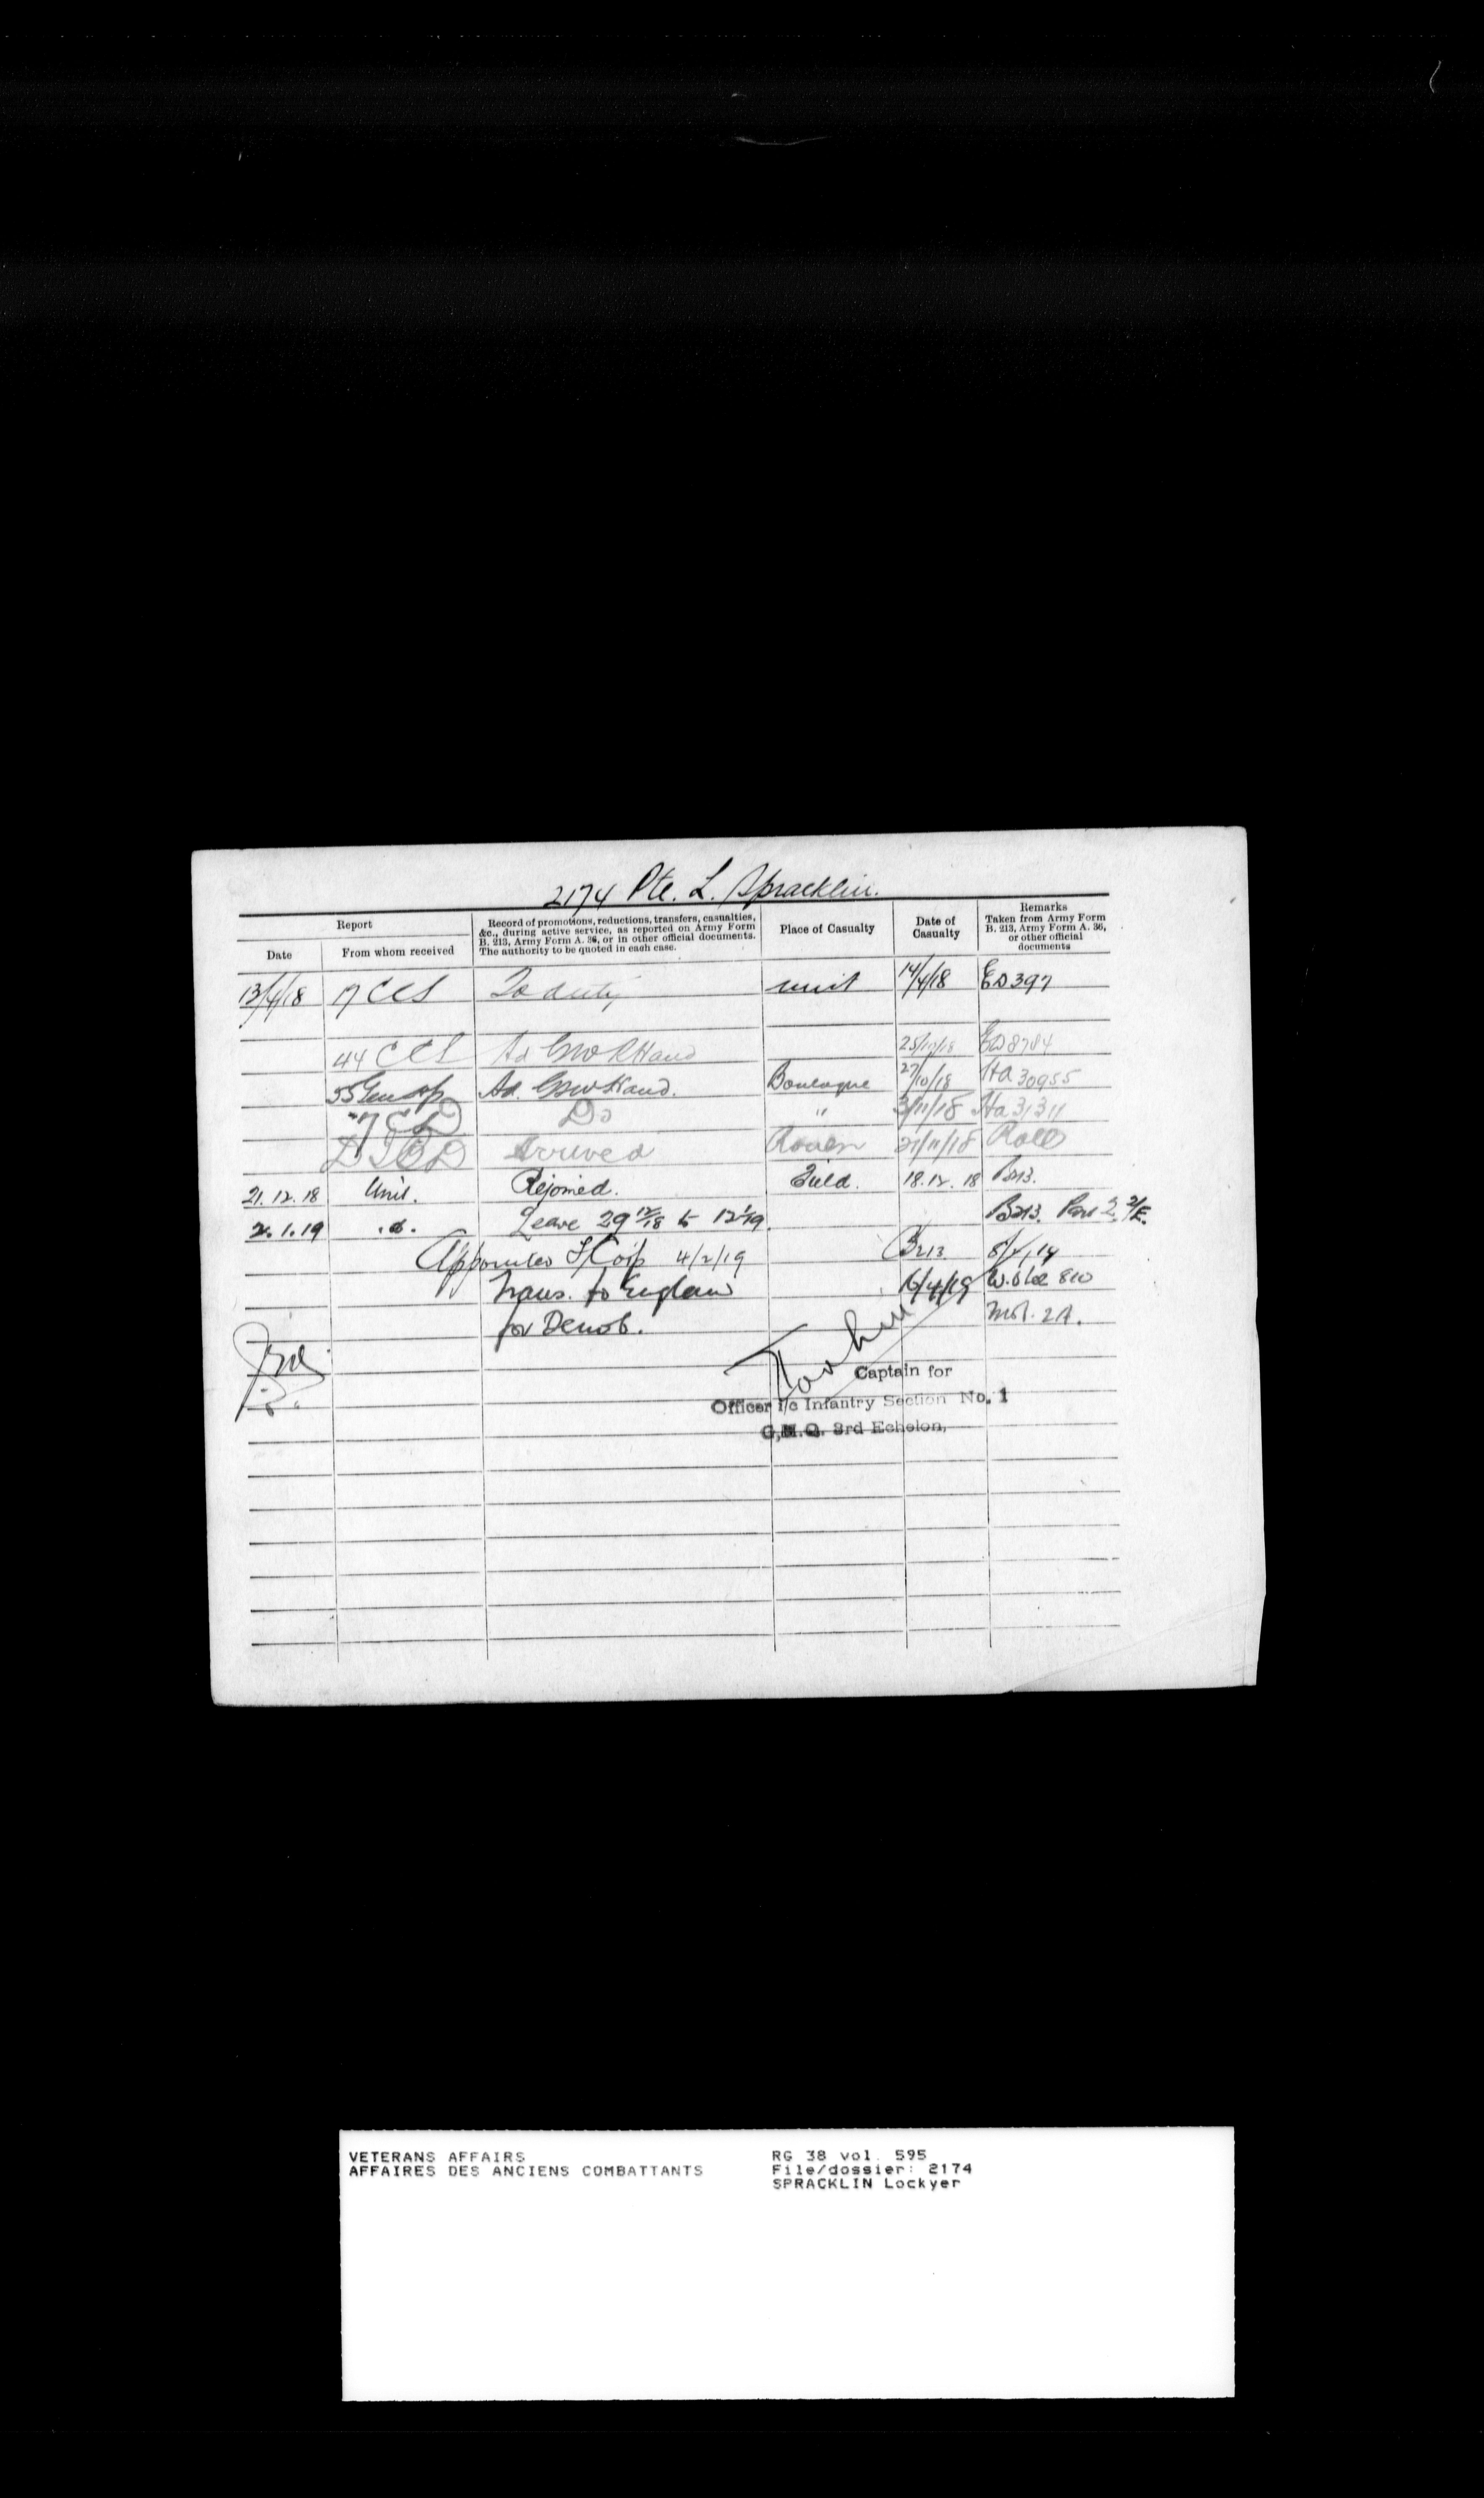 2174 Pte. L. Spracklin.
Report
Date
From whom received
Record of promotions, reductions, transfers, casualties,
&c., during active service, as reported on Army Form
B. 213, Army Form A. 36, or in other official documents.
The authority to be quoted in each case.
Place of Casualty
Date of
Casualty
Remarks
Taken from Army Form
B. 213, Army Form A. 36,
or other official
documents
13/4/18 17 CCS To duty unit 14/4/18 ED 397
44 CCS Ad GSW R Hand 25/10/18 ED 8784
55 Gen Hsp Ad. GSW Hand. Boulogne 27/10/18 Ha 30955
7 C D Do " 3/11/18 Ha 31311
Arrived Rouen 21/11/18 Rolls
21.12.18 Unit. Rejoined. Field. 18.12.18 B213.
2.1.19 .d. Leave 29 12/18 to 12 1/19. B213.
Appointed L/Corp 4/2/19 B213
Trans. to England 6/4/19 810
for Demob. 2A.
Captain for
Officer i/c Infantry Section No. 1
G.H.Q. 3rd Echelon,
VETERANS AFFAIRS
AFFAIRES DES ANCIENS COMBATTANTS
RG 38 vol. 595
File/dossier: 2174
SPRACKLIN Lockyer